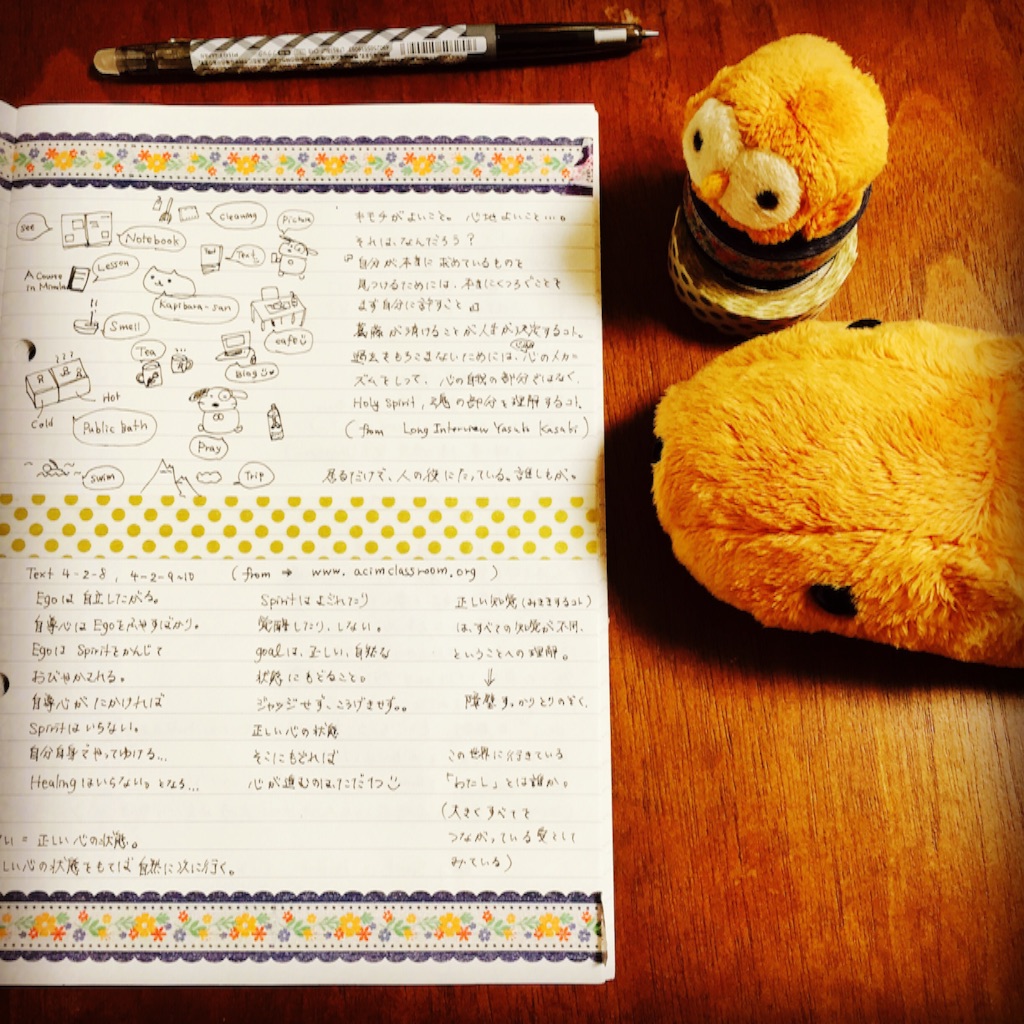 see
Notebook
cleaning
Picture
Text
A Course
in Miracles
Lesson
Kapibara-san
Smell
Tea
cafe
Blog
Hot
Cold
Public bath
Pray
swim
Trip
キモチがよいこと。 心地よいこと…。
それは、なんだろう?
『自分が本当に求めているものを
見つけるためには、本当にくつろぐことを
まず自分に許すこと』
葛藤が頑けることが人生が決定するコト。
過去をもちこまないためには、心のメカニ
ズムをしって、心の自我の部分ではなく、
Holy Spirit, 魂の部分を理解するコト。
(from Long Interview Yasuko Kasaki)
居るだけで、人の役にたっている。誰しもが。
Text 4-2-8, 4-2-9~10 (from → www.acimclassroom.org)
Egoは自立したがる。
自尊心はEgoをふやすばかり。
EgoはSpiritをかんじて
おびやかされる。
自尊心がたかければ
Spiritはいらない。
自分自身でやってゆける...
Healingはいらない。となる...
Spiritはよごれたり
覚醒したり、しない。
goalは、正しい、自然な
状態にもどること。
ジャッジせず、ころげきせず。
正しい心の状態
そこにもどれば
心が進むのは、ただ1つ
正しい知覚(みききするコト)
は、すべての知覚が不用、
ということへの理解。
↓
障壁すっかりとりのぞく、
この世界に行きている
「わたし」とは誰か。
(大きくすべてを
つながっている愛として
みている)
= 正しい心の状態。
しい心の状態をもてば自然に次に行く。